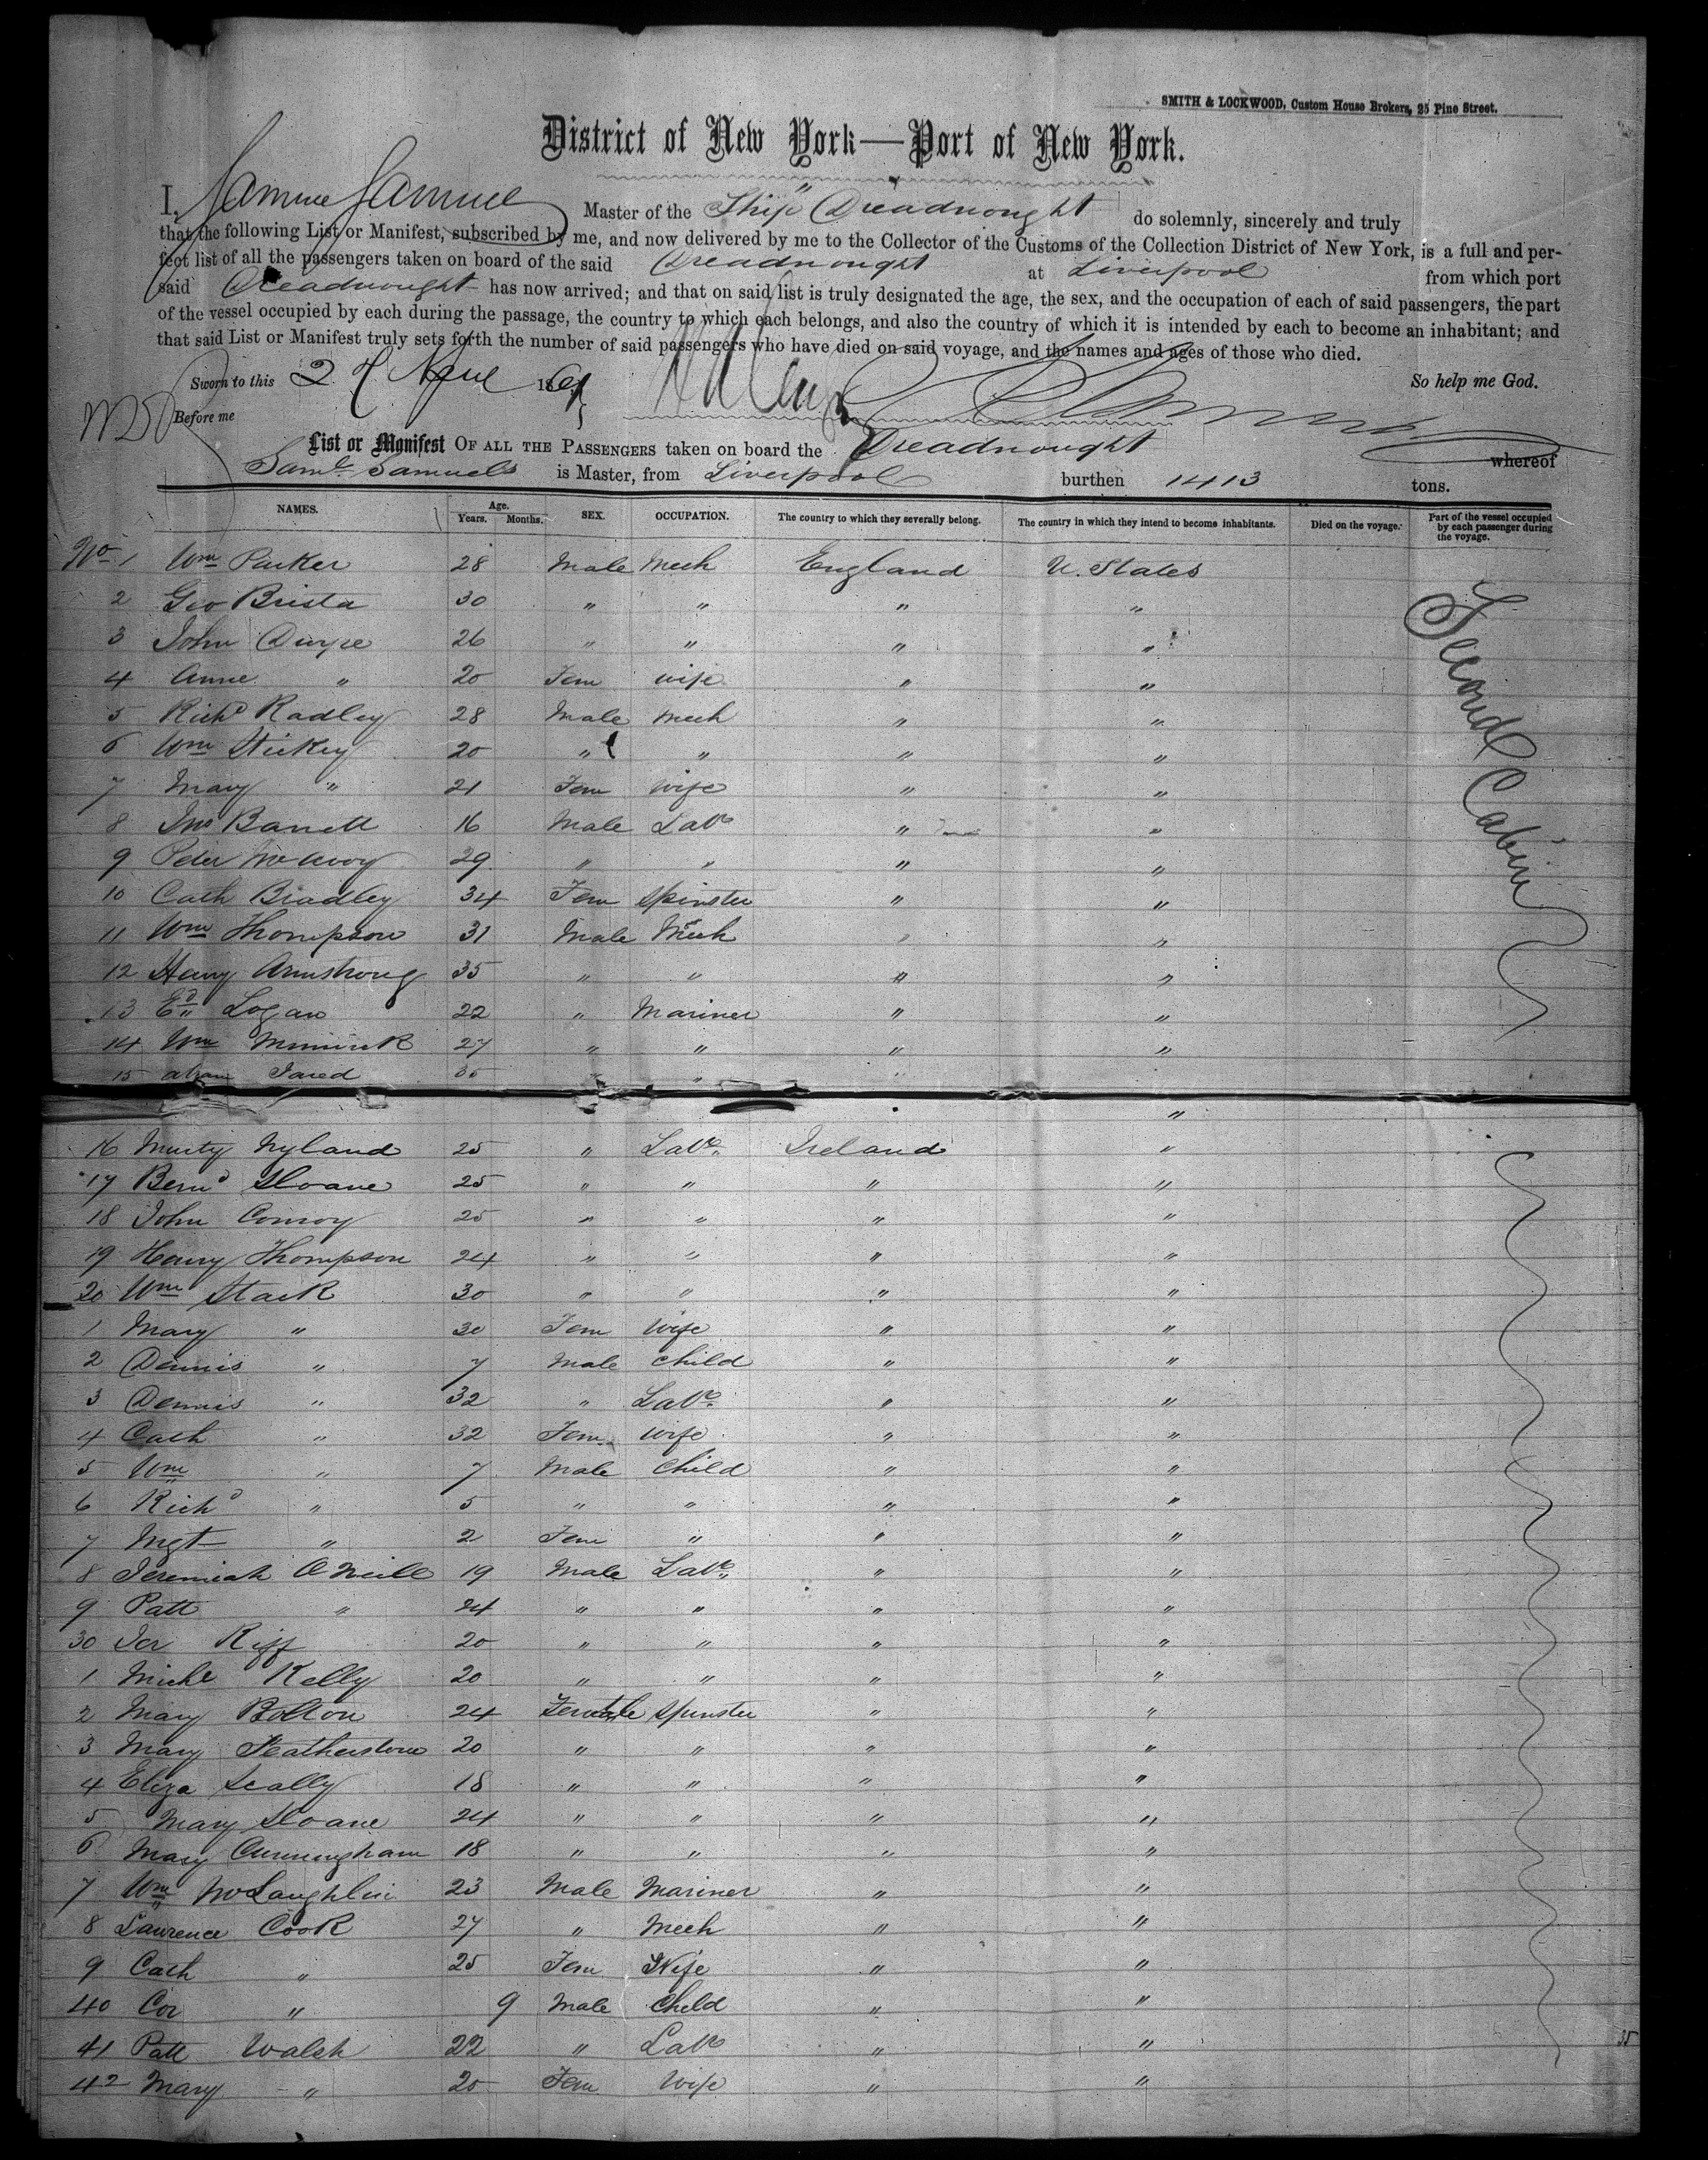 SMITH & LOCKWOOD, Custom House Brokers, 25 Pine Street.
District of New York—Port of New York.
I, Samuel Samuels Master of the Ship Dreadnought do solemnly, sincerely and truly
that the following List or Manifest, subscribed by me, and now delivered by me to the Collector of the Customs of the Collection District of New York, is a full and per-
fect list of all the passengers taken on board of the said Dreadnought at Liverpool from which port
said Dreadnought has now arrived; and that on said list is truly designated the age, the sex, and the occupation of each of said passengers, the part
of the vessel occupied by each during the passage, the country to which each belongs, and also the country of which it is intended by each to become an inhabitant; and
that said List or Manifest truly sets forth the number of said passengers who have died on said voyage, and the names and ages of those who died.
Sworn to this 2 April 1861 So help me God.
Before me
List or Manifest OF ALL THE PASSENGERS taken on board the Dreadnought whereof
Saml Samuels is Master, from Liverpool burthen 1413 tons.
NAMES. Age. Years. Months. SEX. OCCUPATION. The country to which they severally belong. The country in which they intend to become inhabitants. Died on the voyage. Part of the vessel occupied by each passenger during the voyage.
No 1 Wm Parker 28 Male Mech England U. States
Second Cabin
2 Geo Brista 30 " " " "
3 John Durpe 26 " " " "
4 Anne " 20 Fem wife " "
5 Richd Radley 28 Male Mech " "
6 Wm Stickey 20 " " " "
7 Mary " 21 Fem Wife " "
8 Jno Barrett 16 Male Labr " "
9 Peter McAvoy 29 " " " "
10 Cath Bradley 34 Fem Spinster " "
11 Wm Thompson 31 Male Mech " "
12 Harry Armstrong 35 " " " "
13 Ed Logan 22 " Mariner " "
14 Wm 27 " " " "
15 Abram Jared 35 " " " "
16 Murty Nyland 25 " Labr Ireland "
17 Bernd Sloane 25 " " " "
18 John Conroy 25 " " " "
19 Henry Thompson 24 " " " "
20 Wm Stack 30 " " " "
1 Mary " 30 Fem Wife " "
2 Dennis " 7 Male Child " "
3 Dennis " 32 " Labr " "
4 Cath " 32 Fem Wife " "
5 Wm " 7 Male Child " "
6 Richd " 5 " " " "
7 Mgt " 2 Fem " " "
8 Jeremiah O'Neill 19 Male Labr " "
9 Patt " 24 " " " "
30 Jer Riff 20 " " " "
1 Michl Kelly 20 " " " "
2 Mary Bolton 24 Female Spinster " "
3 Mary Featherstone 20 " " " "
4 Eliza Scally 18 " " " "
5 Mary Sloane 24 " " " "
6 Mary Cunningham 18 " " " "
7 Wm McLaughlin 23 Male Mariner " "
8 Lawrence Cook 27 " Mech " "
9 Cath " 25 Fem Wife " "
40 Cor " 9 Male Child " "
41 Patt Walsh 22 " Labr " "
42 Mary " 20 Fem Wife " "